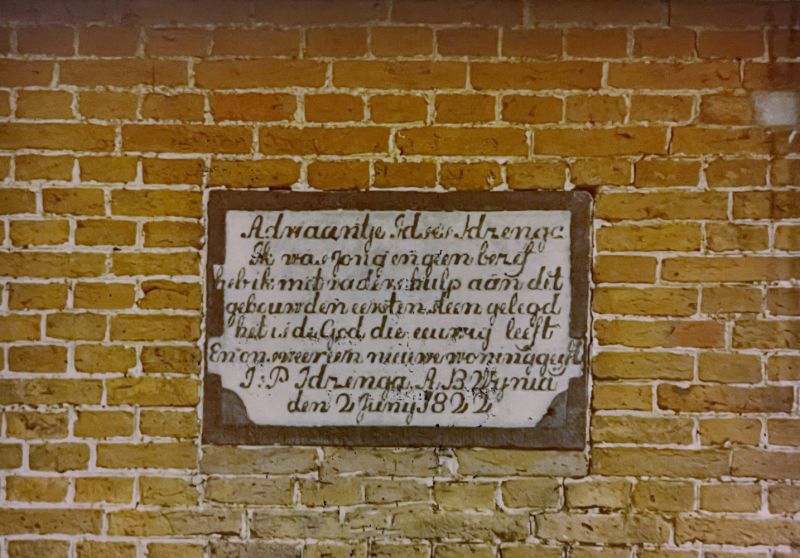 Adriaantje Idses Idzenga
Ik was jong en geen besef
heb ik met vaders hulp aan dit
gebouw den eersten steen gelegd
het is de God die eeuwig leeft
En ons weer een nieuwe woning geeft
I:P Idzenga A B Wynia
den 2 Juny 1822